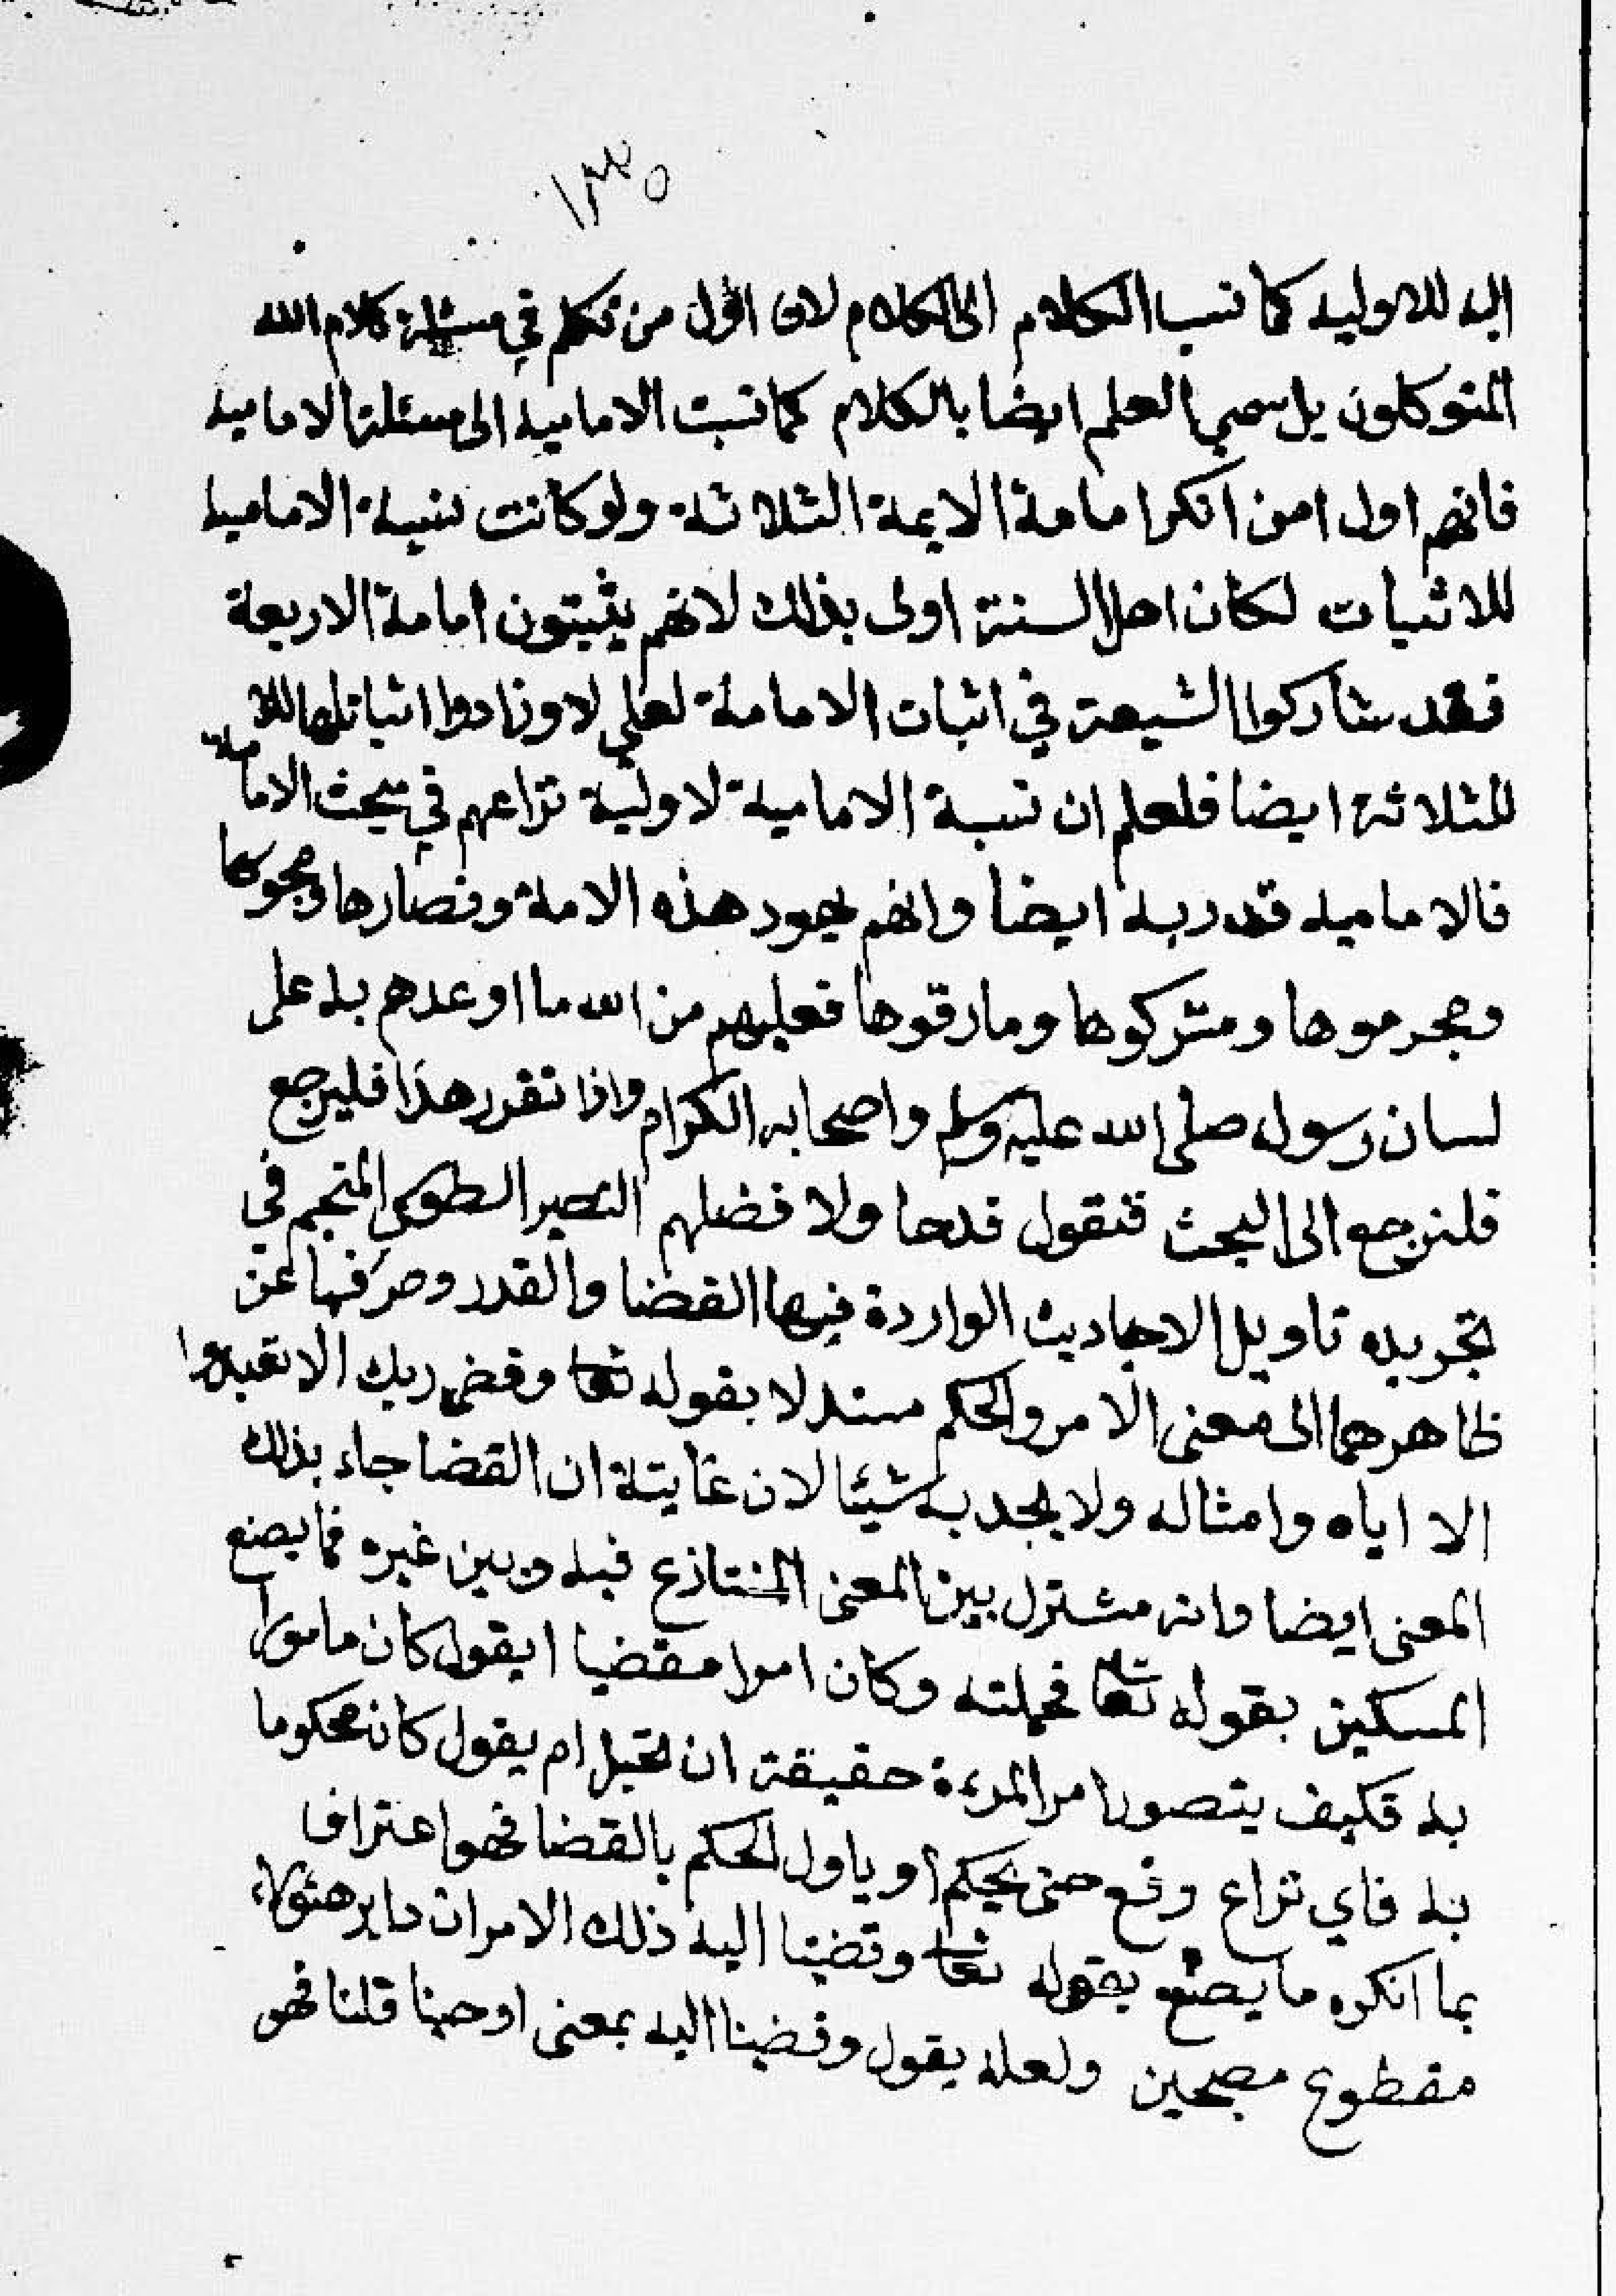 ١٣٥
اليه للاوليه كما نسب الكلام الى الكلام لان اول من تكلم في مسئلة كلام الله
المتوكلون بل سمي العلم ايضا بالكلام كما نسبت الاماميه الى مسئلة الاماميه
فانهم اول امن انكر امامة الايمة الثلاثة ولو كانت نسبة الاماميه
للاثبات لكان اهل السنة اولى بذلك لانهم يثبتون امامة الاربعة
فقد شاركوا الشيعة في اثبات الامامة لعلي لا وزادوا اثباتها
للثلاثة ايضا فلعلم ان نسبة الامامية لاولية نزاعهم في بحث الامامة
فالاماميه قدرية ايضا وانهم يهود هذه الامة ونصارها ومجوسها
ومجرموها ومشركوها ومارقوها فعليهم من الله ما اوعدهم به على
لسان رسوله صلى الله عليه وسلم واصحابه الكرام واذا تقرر هذا فليرجع
فلنرجع الى البحث فنقول قدحا ولا فضلهم النصير الطوسي المنجم في
تجريده تاويل الاحاديث الواردة فيها القضا والقدر وصرفها عن
ظاهرهما الى معنى الامر والحكم مستدلا بقوله تعا وقضى ربك الا تعبدوا
الا اياه وامثاله ولا يجد به شيئا لان غايتة ان القضا جاء بذلك
المعنى ايضا وانه مشترك بين المعنى المتنازع فيه وبين غيره فما يصنع
المسكين بقوله تعا فحملته وكان امرا مقضيا ايقول كان مامورا
به فكيف يتصور امر المرءة حقيقة ان تحبل ام يقول كان محكوما
به فاي نزاع وقع حتى يحكم او ياول الحكم بالقضا فهو اعتراف
بما انكره ما يصنع بقوله تعا وقضينا اليه ذلك الامر ان دابر هئولاء
مقطوع مصبحين ولعله يقول وقضينا اليه بمعنى اوحينا قلنا فهو